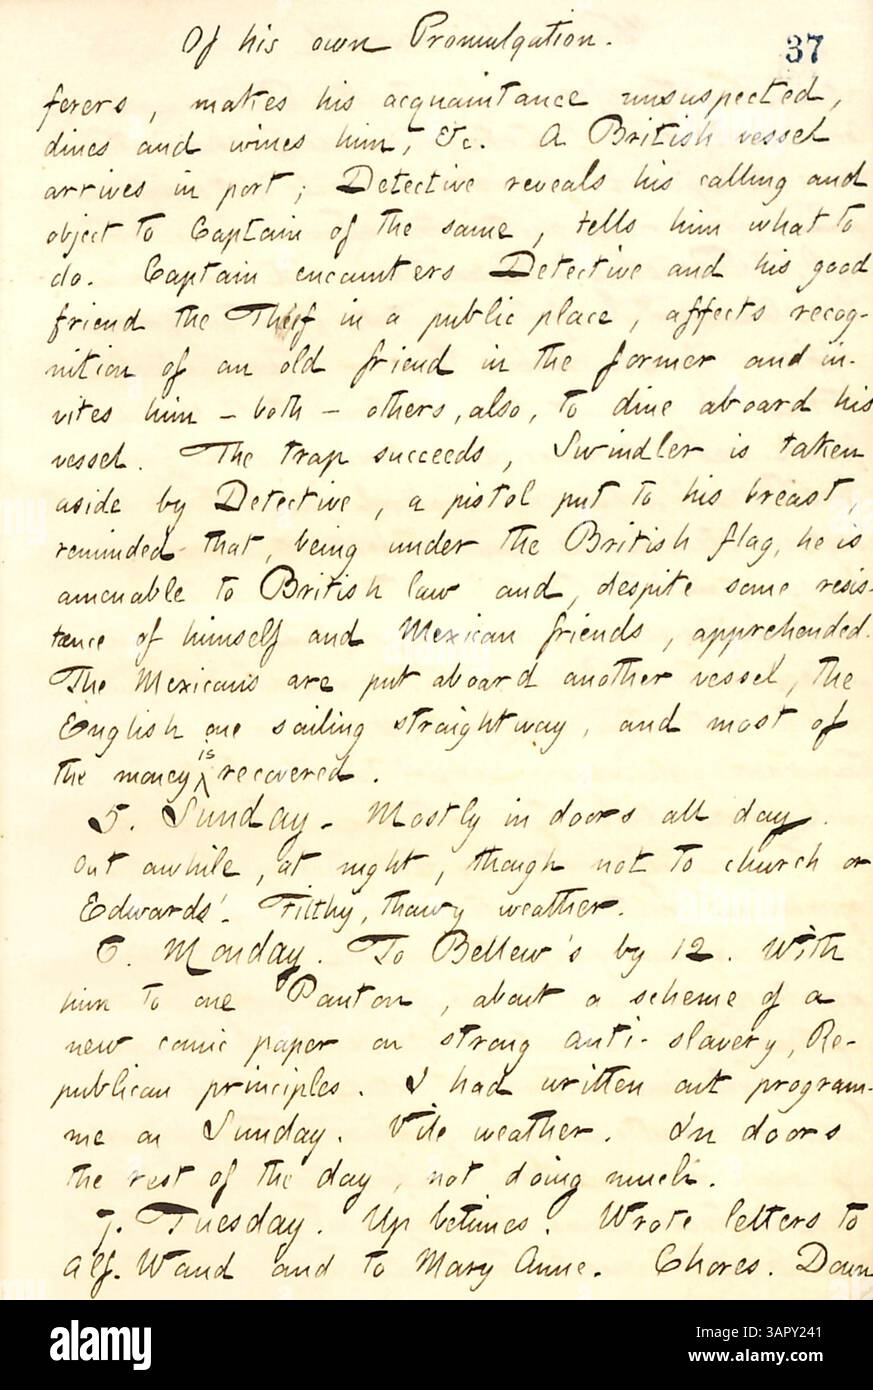 Of his own Promulgation.
37
ferers, makes his acquaintance unsuspected,
dines and wines him, &c. A British vessel
arrives in port; Detective reveals his calling and
object to Captain of the same, tells him what to
do. Captain encounters Detective and his good
friend the Thief in a public place, affects recog-
nition of an old friend in the former and in-
vites him - both - others, also, to dine aboard his
vessel. The trap succeeds, Swindler is taken
aside by Detective, a pistol put to his breast,
reminded that, being under the British flag, he is
amenable to British law and, despite some resis-
tance of himself and Mexican friends, apprehended.
The Mexicans are put aboard another vessel, the
English one sailing straightway, and most of
the money is recovered.
5. Sunday. Mostly in doors all day.
Out awhile, at night, though not to church or
Edwards'. Filthy, thawy weather.
6. Monday. To Bellew's by 12. With
him to one Panton, about a scheme of a
new comic paper on strong anti-slavery, Re-
publican principles. I had written out program-
me on Sunday. Vile weather. In doors
the rest of the day, not doing much.
7. Tuesday. Up betimes. Wrote letters to
Alf. Waud and to Mary Anne. Chores. Down
alamy
Image ID: 3APY241
www.alamy.com